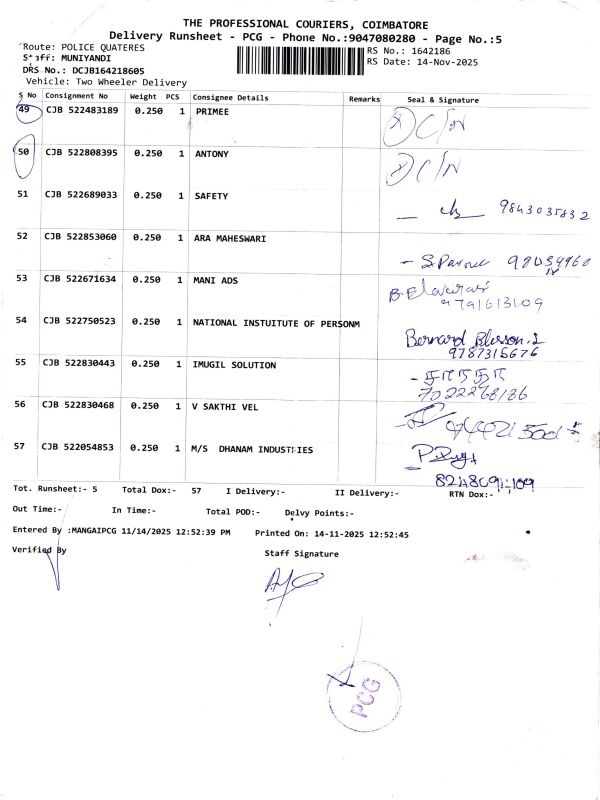 THE PROFESSIONAL COURIERS, COIMBATORE
Delivery Runsheet - PCG - Phone No.:9047080280 - Page No.:5
Route: POLICE QUATERES
RS No.: 1642186
Staff: MUNIYANDI
RS Date: 14-Nov-2025
DRS No.: DCJB164218605
Vehicle: Two Wheeler Delivery
S No Consignment No Weight PCS Consignee Details Remarks Seal & Signature
49 CJB 522483189 0.250 1 PRIMEE C/N
50 CJB 522808395 0.250 1 ANTONY C/N
51 CJB 522689033 0.250 1 SAFETY 9843035832
52 CJB 522853060 0.250 1 ARA MAHESWARI
53 CJB 522671634 0.250 1 MANI ADS
54 CJB 522750523 0.250 1 NATIONAL INSTUITUTE OF PERSONM Bernard
9787315676
55 CJB 522830443 0.250 1 IMUGIL SOLUTION
7022268186
56 CJB 522830468 0.250 1 V SAKTHI VEL
57 CJB 522054853 0.250 1 M/S DHANAM INDUSTRIES
Tot. Runsheet:- 5 Total Dox:- 57 I Delivery:- II Delivery:- RTN Dox:-
Out Time:- In Time:- Total POD:- Delvy Points:-
Entered By :MANGAIPCG 11/14/2025 12:52:39 PM Printed On: 14-11-2025 12:52:45
Verified By Staff Signature
PCG